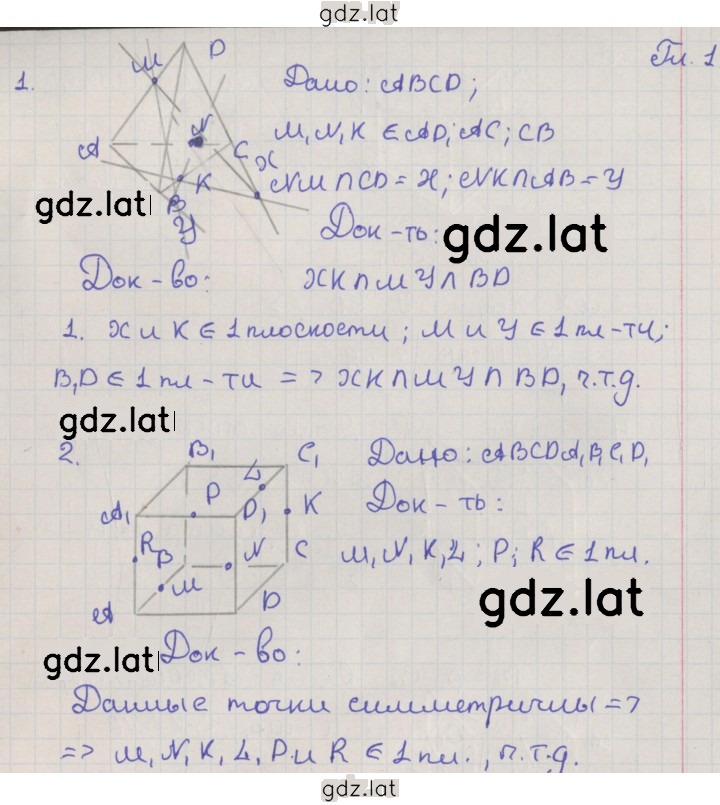 gdz.lat
Гл. 1
1.
M
D
Дано: ABCD;
N
M, N, K ∈ AD; AC; CB
A
C
X
K
NM ∩ CD = X; NK ∩ AB = Y
B
gdz.lat
Y
Док-ть:
gdz.lat
Док-во:
XK ∩ MY ∩ BD
1. X и K ∈ 1 плоскости; M и Y ∈ 1 пл-ти;
B, D ∈ 1 пл-ти => XK ∩ MY ∩ BD, ч.т.д.
gdz.lat
2.
B₁
C₁
Дано: ABCDA₁B₁C₁D₁
L
A₁
P
D₁
K
Док-ть:
R
B
N
C
M, N, K, L; P; R ∈ 1 пл.
M
A
D
gdz.lat
gdz.lat
Док-во:
Данные точки симметричны =>
=> M, N, K, L, P и R ∈ 1 пл., ч.т.д.
gdz.lat